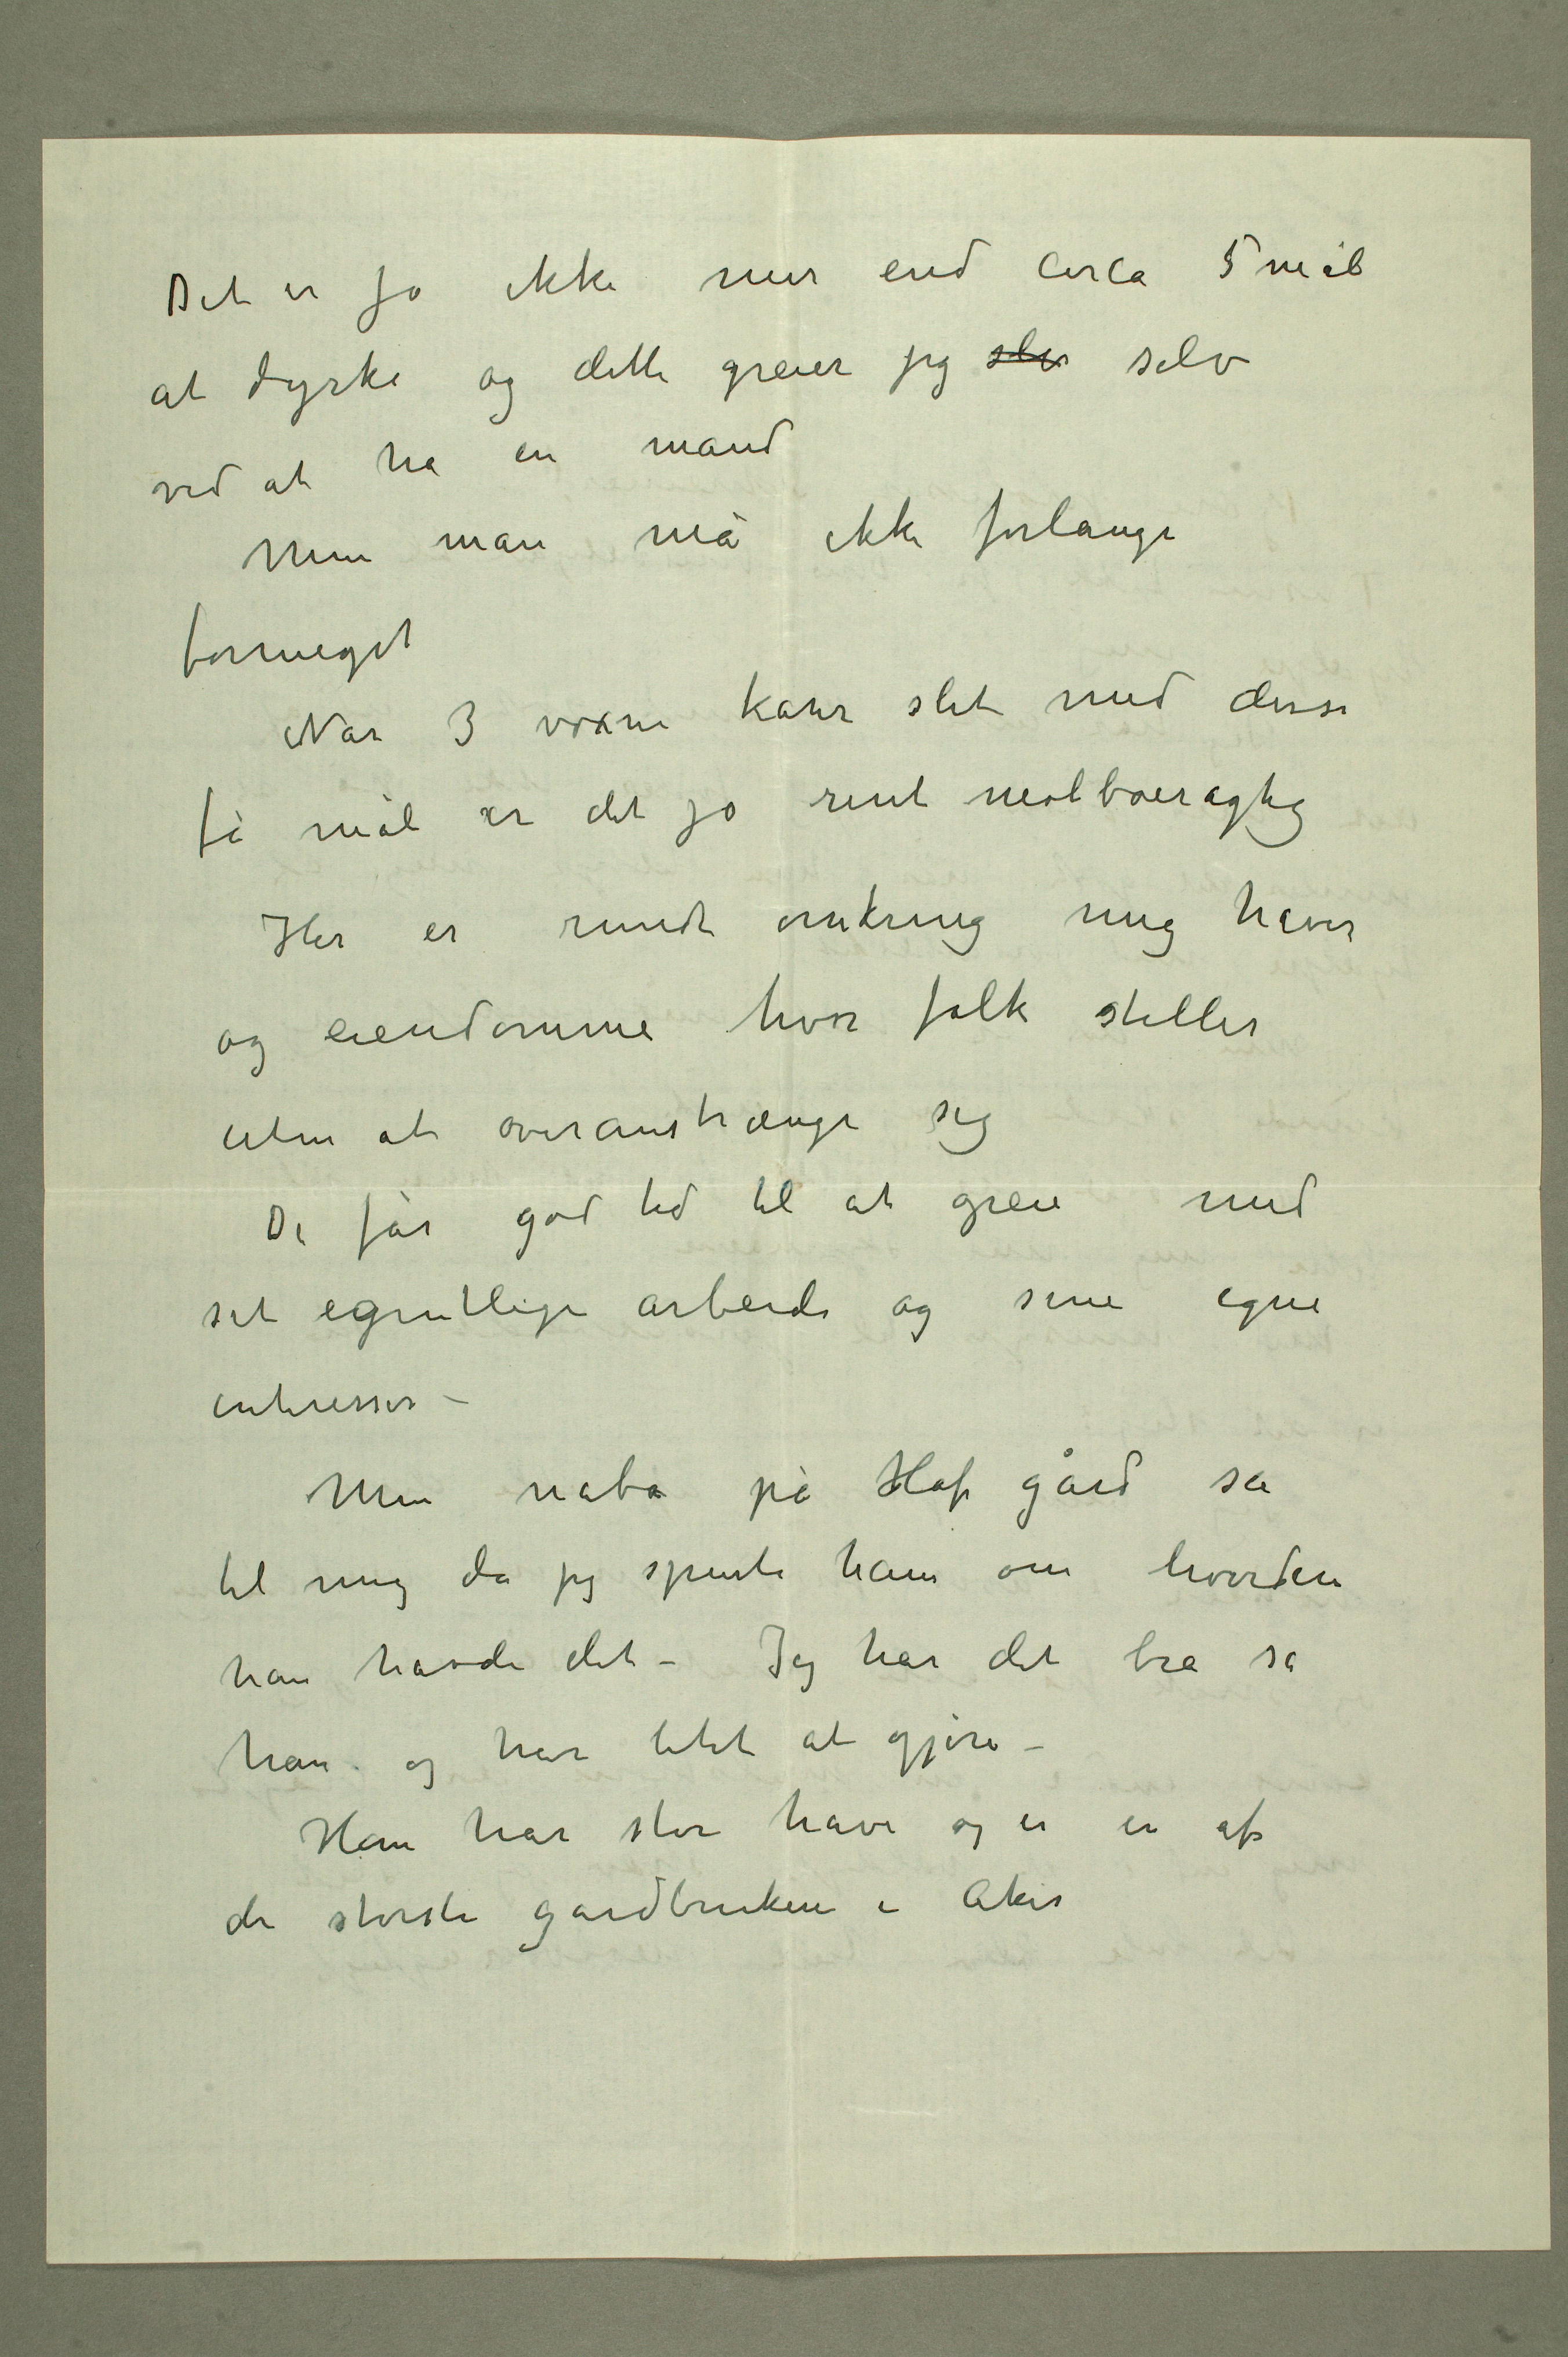 Det er jo ikke mer end circa 5 mål
at dyrke og dette greier jeg sler selv
ved at ha en mand
Men man må ikke forlange
formeget
Når 3 voxne karer slit med disse
få mål er det jo rent molboeragtig
Her er rundt omkring mig haver
og eiendomme hvor folk steller
uten at overanstrænge sig
De får god tid til at greie med
sit egentlige arbeide og sine egne
interesser –
Min nabo på Hof gård sa
til mig da jeg spurte ham om hvordan
han havde det – Jeg har det bra sa
han. og har litet at gjøre –
Han har stor have og er en af
de største gårdbrukere i Aker